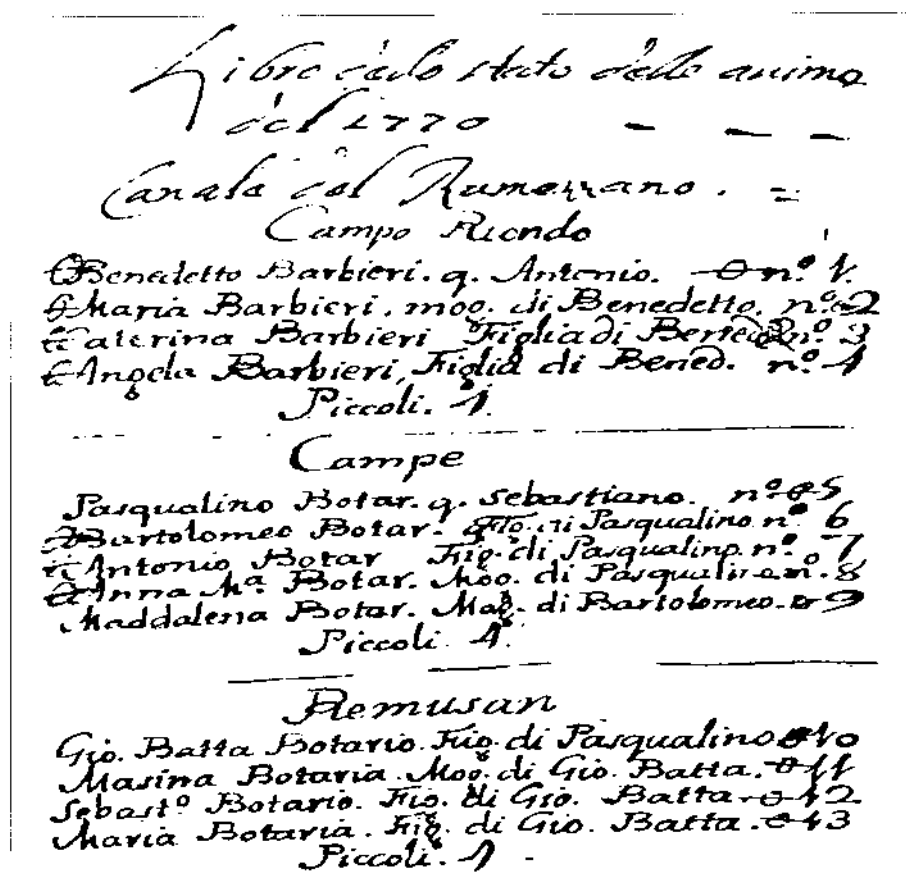 Libro dello stato delle anime
del 1770
Canale del Rumezzano.
Campo Riondo
Benedetto Barbieri. q. Antonio. nº. 1.
Maria Barbieri. mog. di Benedetto. nº. 2
Caterina Barbieri Figlia di Bened. nº. 3
Angela Barbieri, Figlia di Bened. nº. 4
Piccoli. 1.
Campe
Pasqualino Botar. q. Sebastiano. nº 5
Bartolomeo Botar. Fig. di Pasqualino. nº 6
Antonio Botar Fig. di Pasqualino. nº. 7
Anna Mª. Botar. Mog. di Pasqualino nº. 8
Maddalena Botar. Mog. di Bartolomeo. 9
Piccoli. 1.
Remusan
Gio. Batta Botario. Fig. di Pasqualino 10
Masina Botaria. Mog. di Gio. Batta. 11
Sebastº Botario. Fig. di Gio. Batta. 12
Maria Botaria. Fig. di Gio. Batta. 13
Piccoli. 1